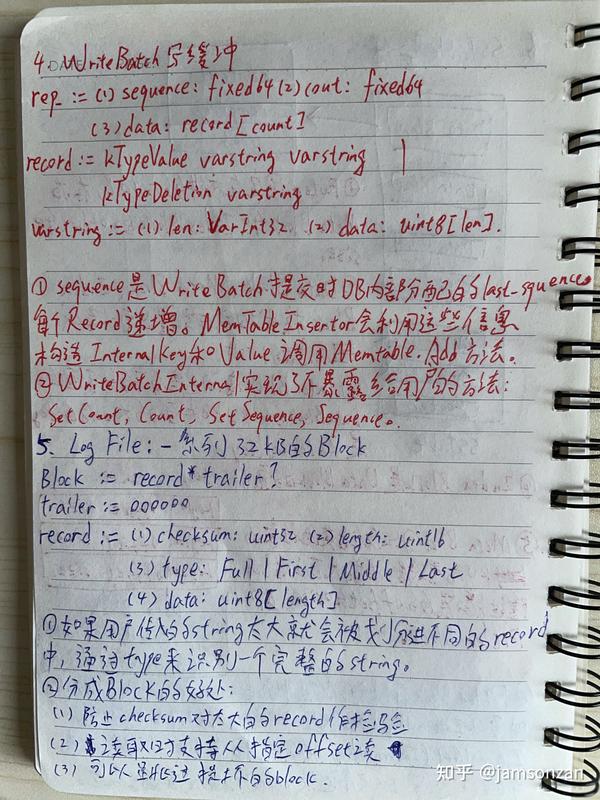 4. WriteBatch 写缓冲
rep := (1) sequence: fixed64 (2) cout: fixed64
(3) data: record[count]
record := kTypeValue varstring varstring |
kTypeDeletion varstring
varstring := (1) len: VarInt32 (2) data: uint8[len].
① sequence是WriteBatch提交时DB内部分配的last-squence
每个Record递增。MemTableInsertor会利用这些信息
构造InternalKey和Value 调用Memtable.Add方法。
② WriteBatchInternal实现了不暴露给用户的方法:
SetCount, Count, SetSequence, Sequence。
5. Log File: 一系列32kB的Block
Block := record* trailer?
trailer := 000000
record := (1) checksum: uint32 (2) length: uint16
(3) type: Full | First | Middle | Last
(4) data: uint8[length]
①如果用户传入的string太大就会被划分进不同的record
中,通过type来识别一个完整的string。
②分成Block的好处:
(1) 防止checksum对太大的record作检验
(2) 读取时支持从指定offset读
(3) 可以跳过损坏的block.
知乎 @jamsonzan